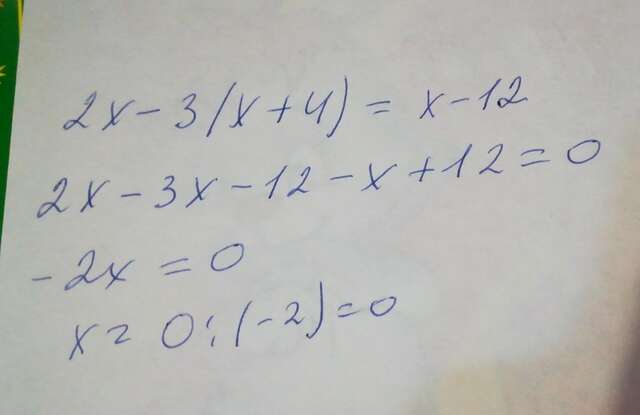 2x - 3(x + 4) = x - 12
2x - 3x - 12 - x + 12 = 0
- 2x = 0
x = 0 : (-2) = 0